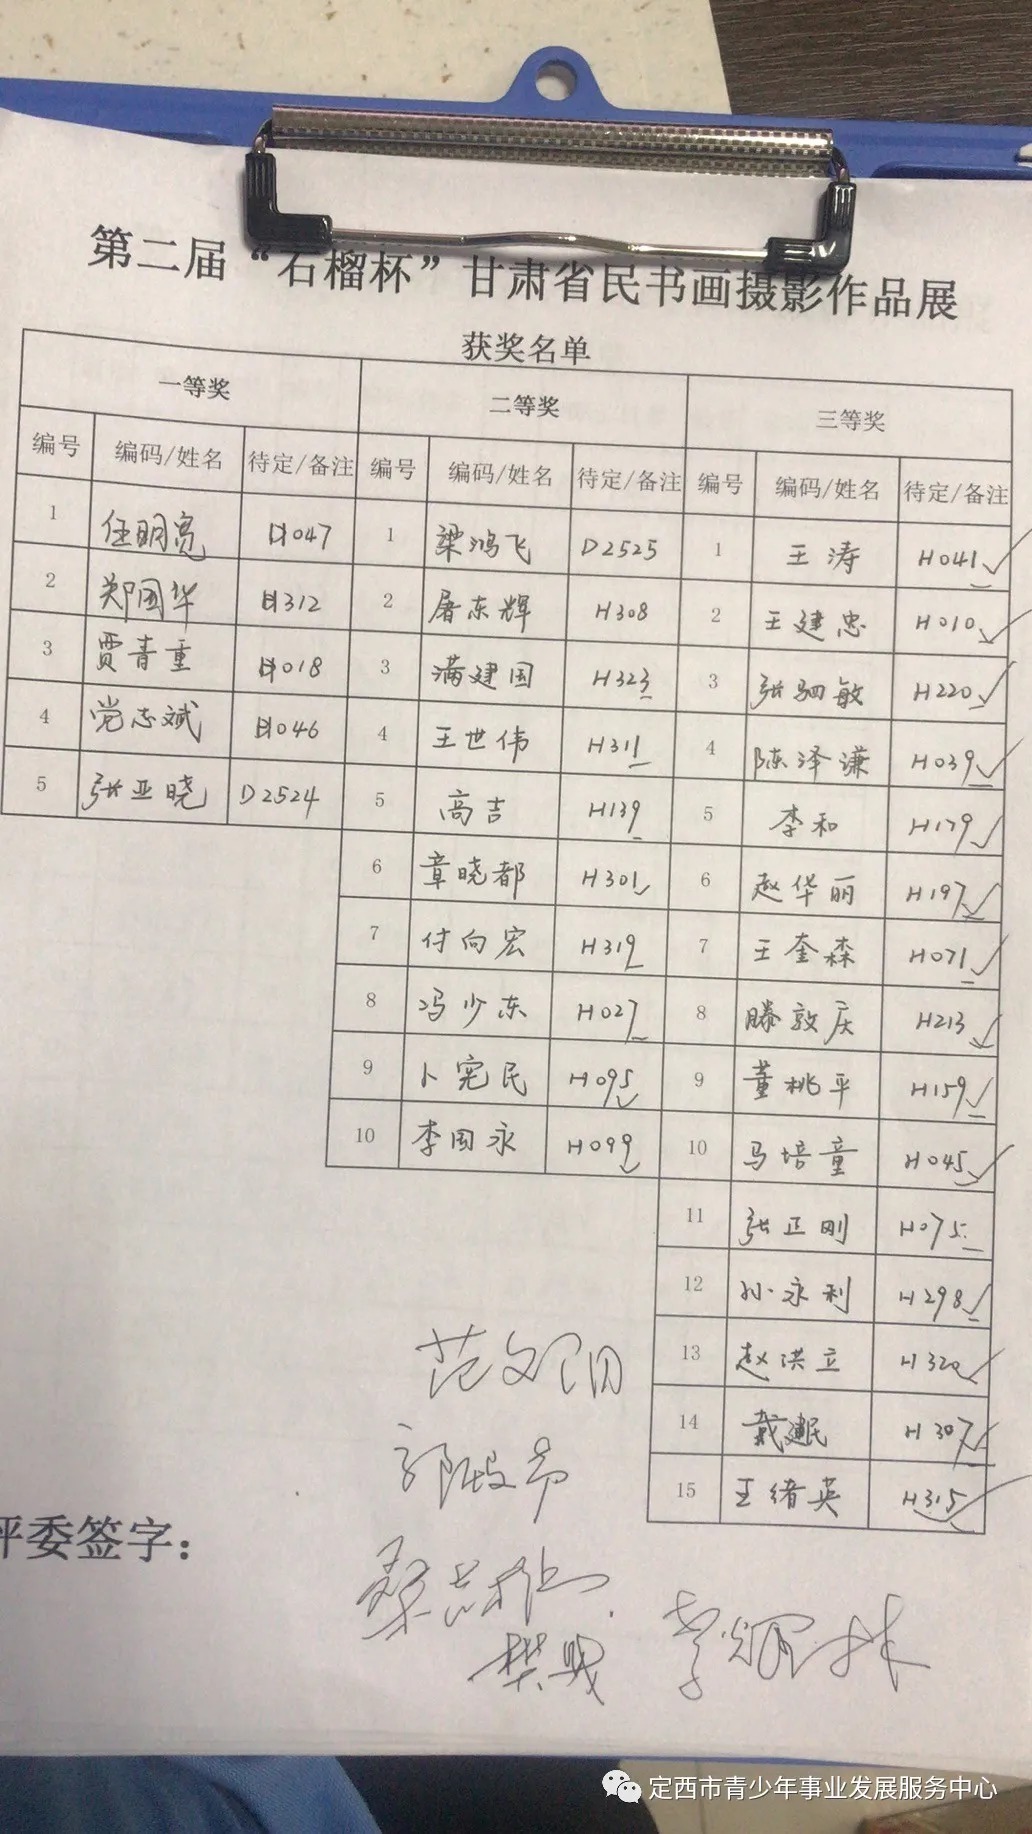 第二届“石榴杯”甘肃省民书画摄影作品展
获奖名单
一等奖 二等奖 三等奖
编号 编码/姓名 待定/备注 编号 编码/姓名 待定/备注 编号 编码/姓名 待定/备注
1 任明亮 H047 1 梁鸿飞 D2525 1 王涛 H041
2 郑国华 H312 2 屠东辉 H308 2 王建忠 H010
3 贾青重 H018 3 满建国 H323 3 张驷敏 H220
4 党志斌 H046 4 王世伟 H311 4 陈泽谦 H039
5 张亚晓 D2524 5 高吉 H139 5 李和 H179
6 章晓都 H301 6 赵华丽 H197
7 付向宏 H319 7 王奎森 H071
8 冯少东 H027 8 滕敦庆 H213
9 卜宪民 H095 9 董桃平 H159
10 李国永 H099 10 马培童 H045
11 张正刚 H075
12 孙永利 H298
13 赵洪立 H320
14 戴建民 H307
15 王绪英 H315
范文阳
评委签字：
樊威
李耀林
定西市青少年事业发展服务中心